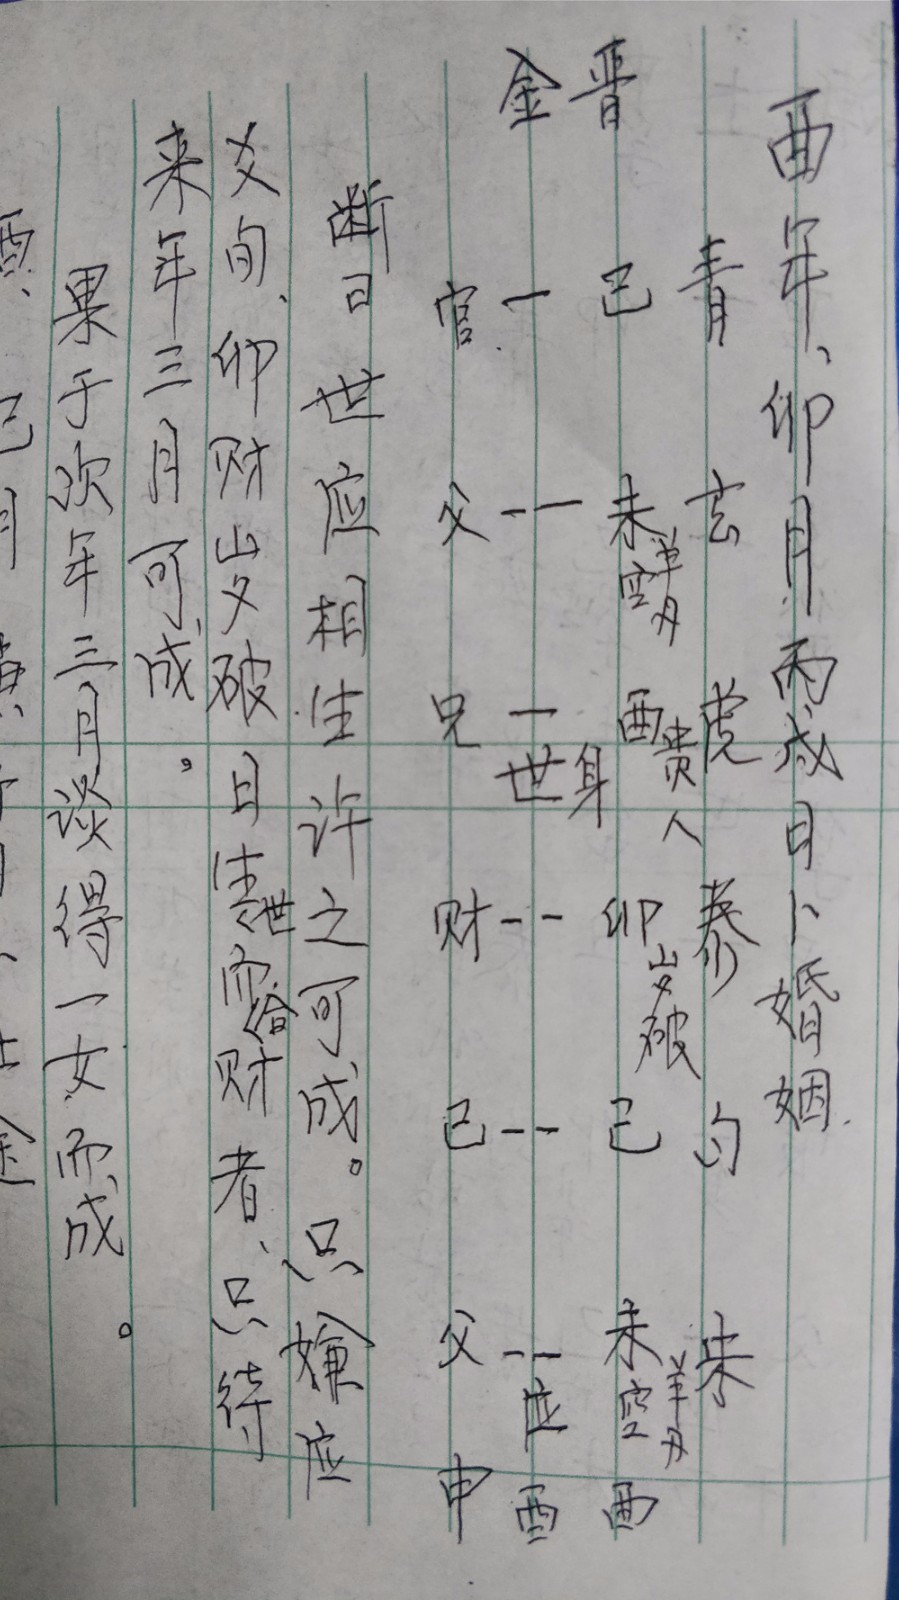 酉年、卯月丙戌日卜婚姻.
青 玄 虎 勾 朱
晋 巳 未 空 羊刃 酉 贵人 身 卯 岁破 巳 未 空 羊刃 酉
金 一 -- 一 世 -- -- -- 应 酉
官 父 兄 财 己 父 申
断曰世应相生许之可成。只嫌应
爻旬、卯财岁破日生世而合财者、只待
来年三月可成。
果于次年三月谈得一女而成。
酉、巳月